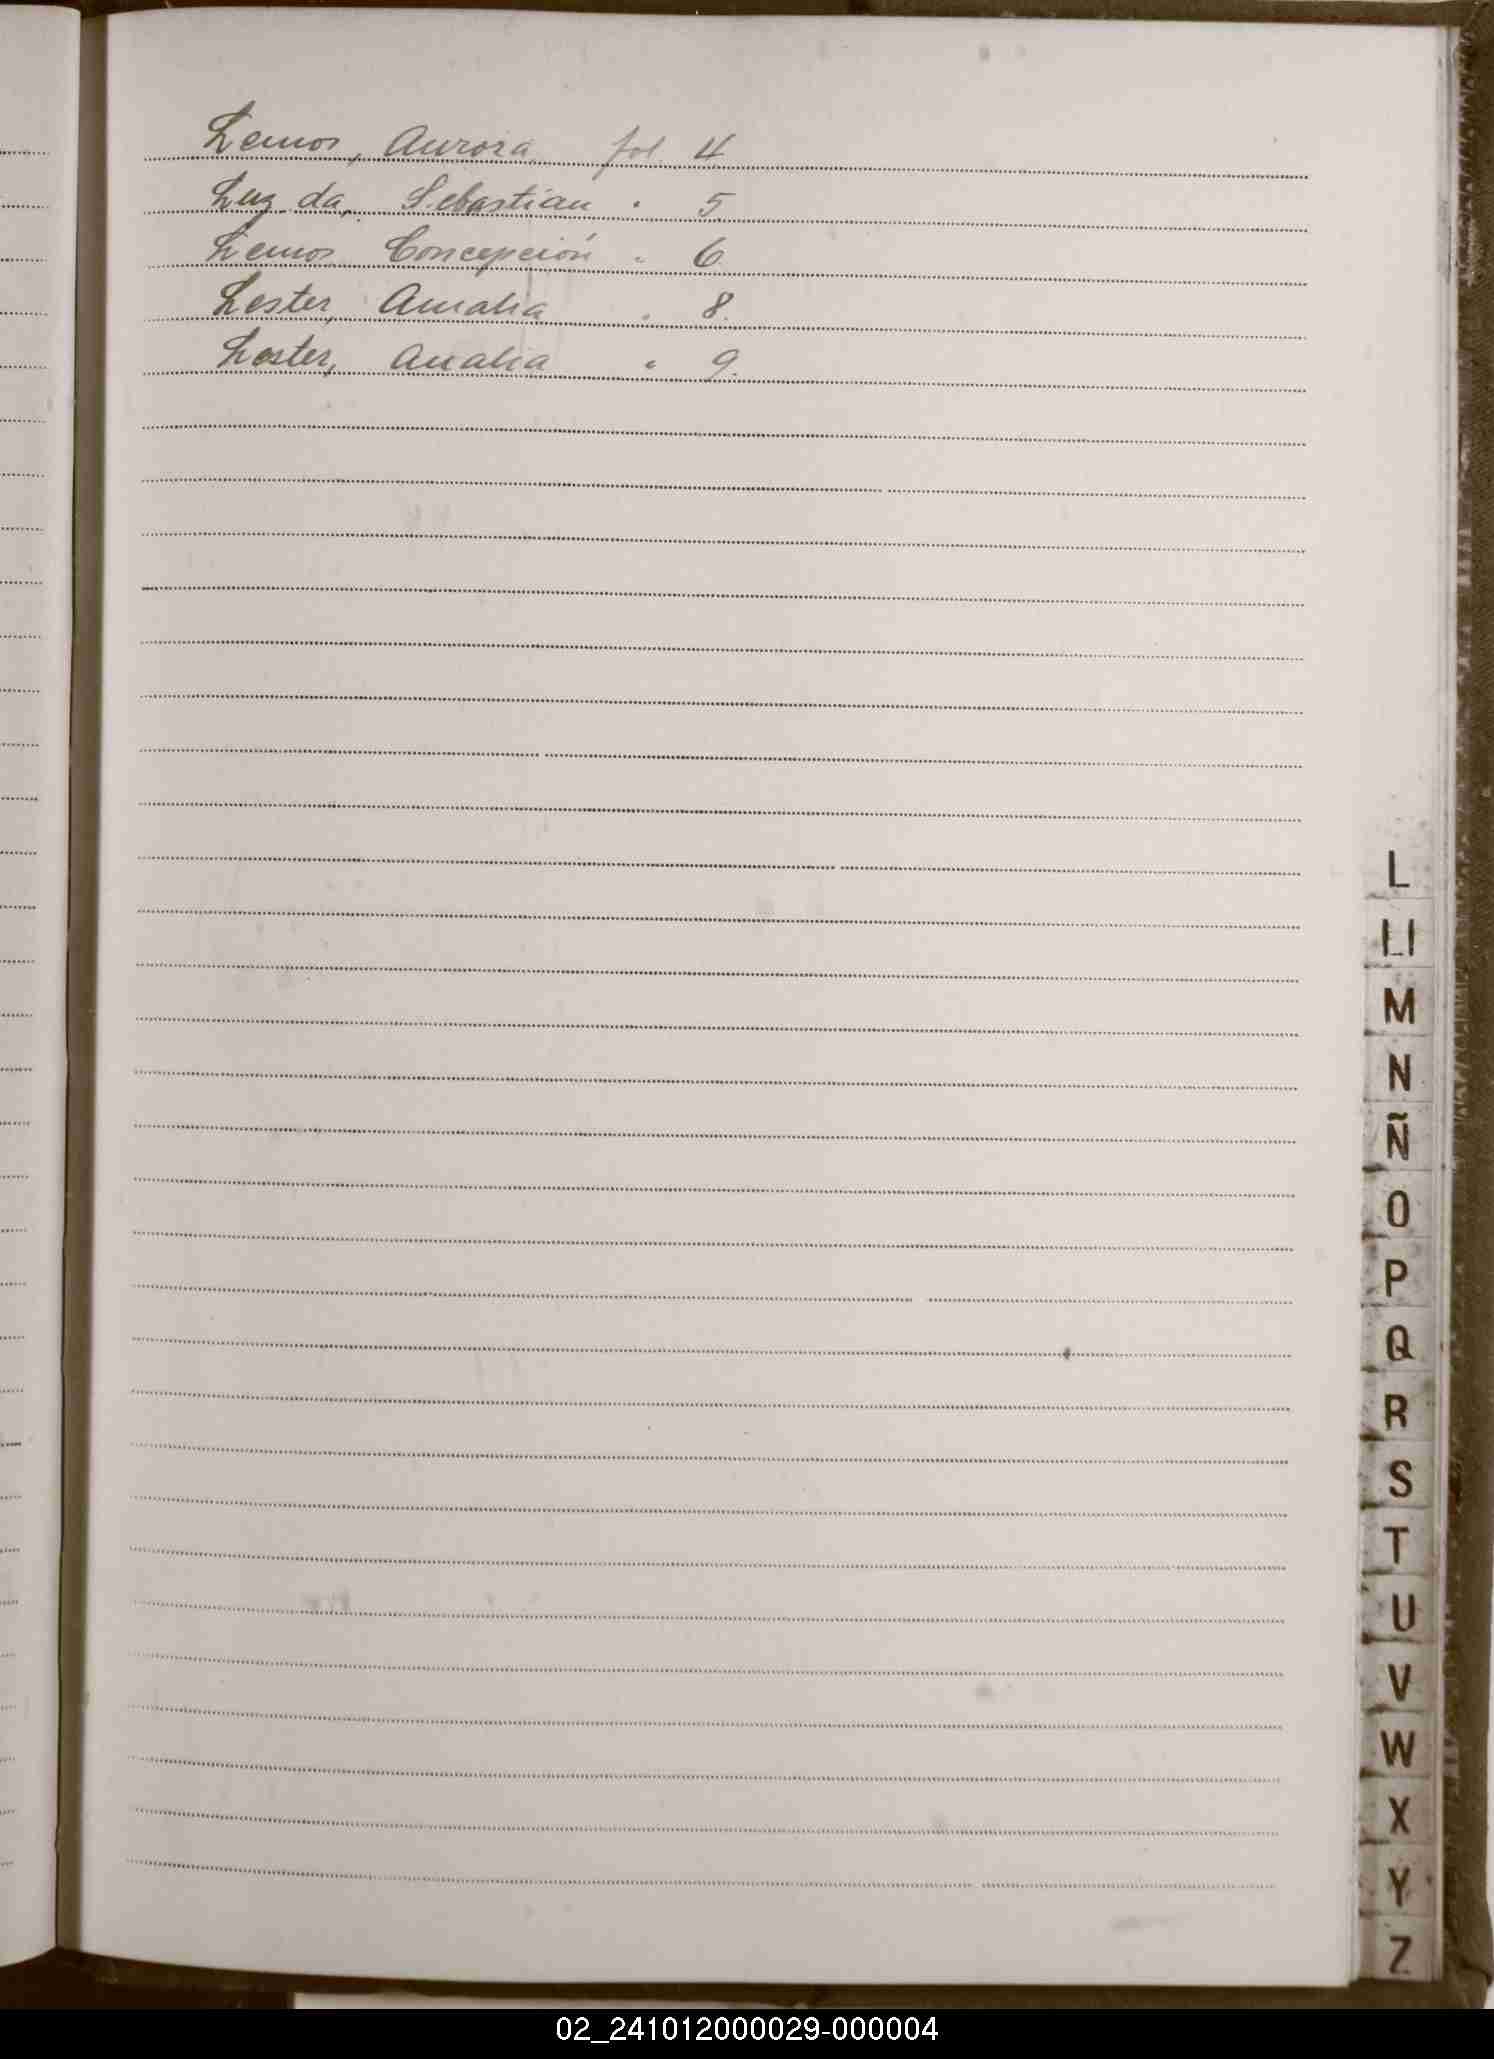 Lemos, Aurora fol. 4
Luz da, Sebastian " 5
Lemos Concepción " 6
Lester, Amalia " 8.
Lester, Analia " 9.
L
Ll
M
N
Ñ
O
P
Q
R
S
T
U
V
W
X
Y
Z
02_241012000029-000004